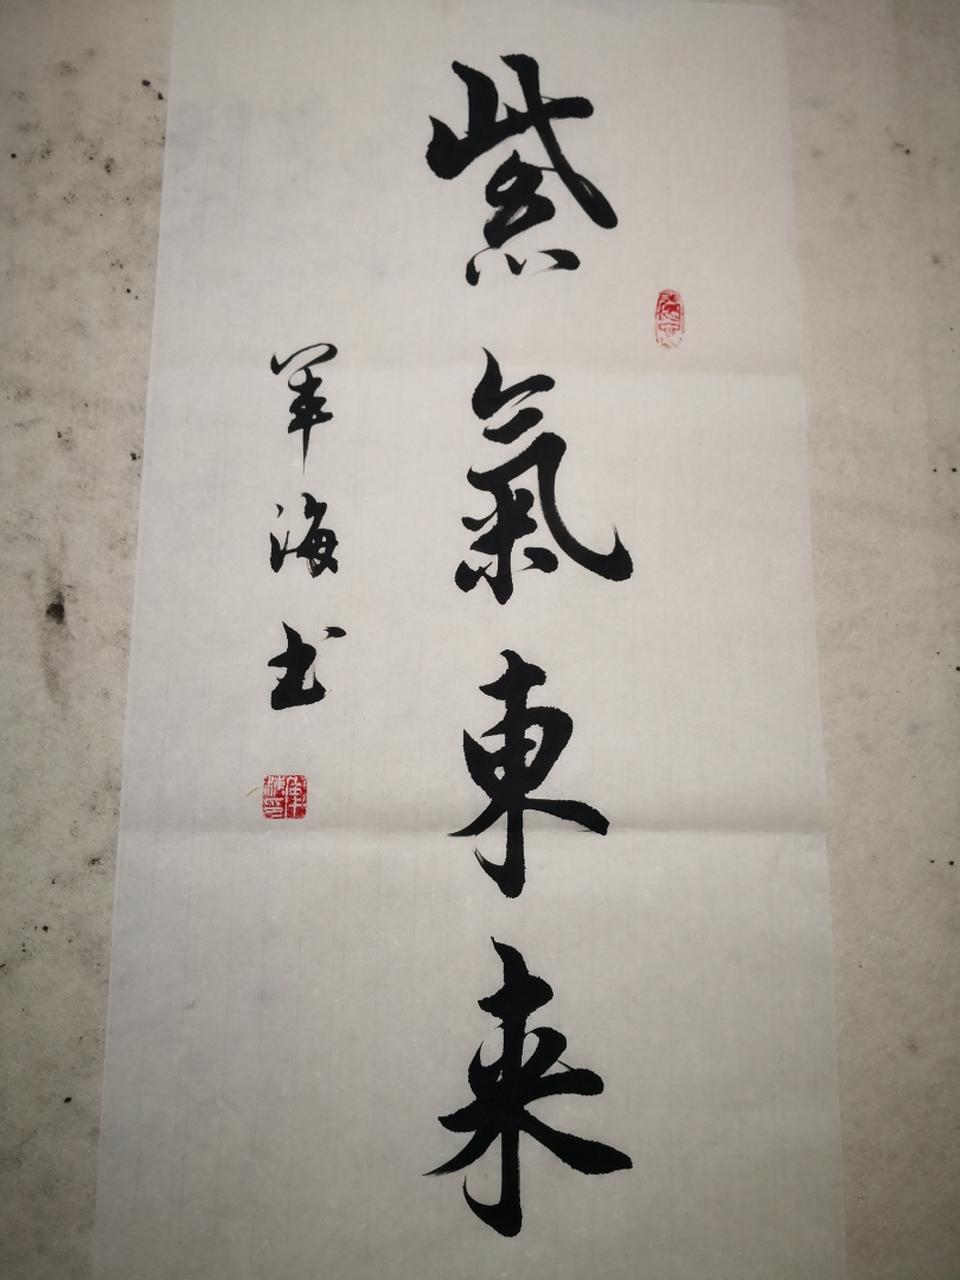 紫氣東来
军海书